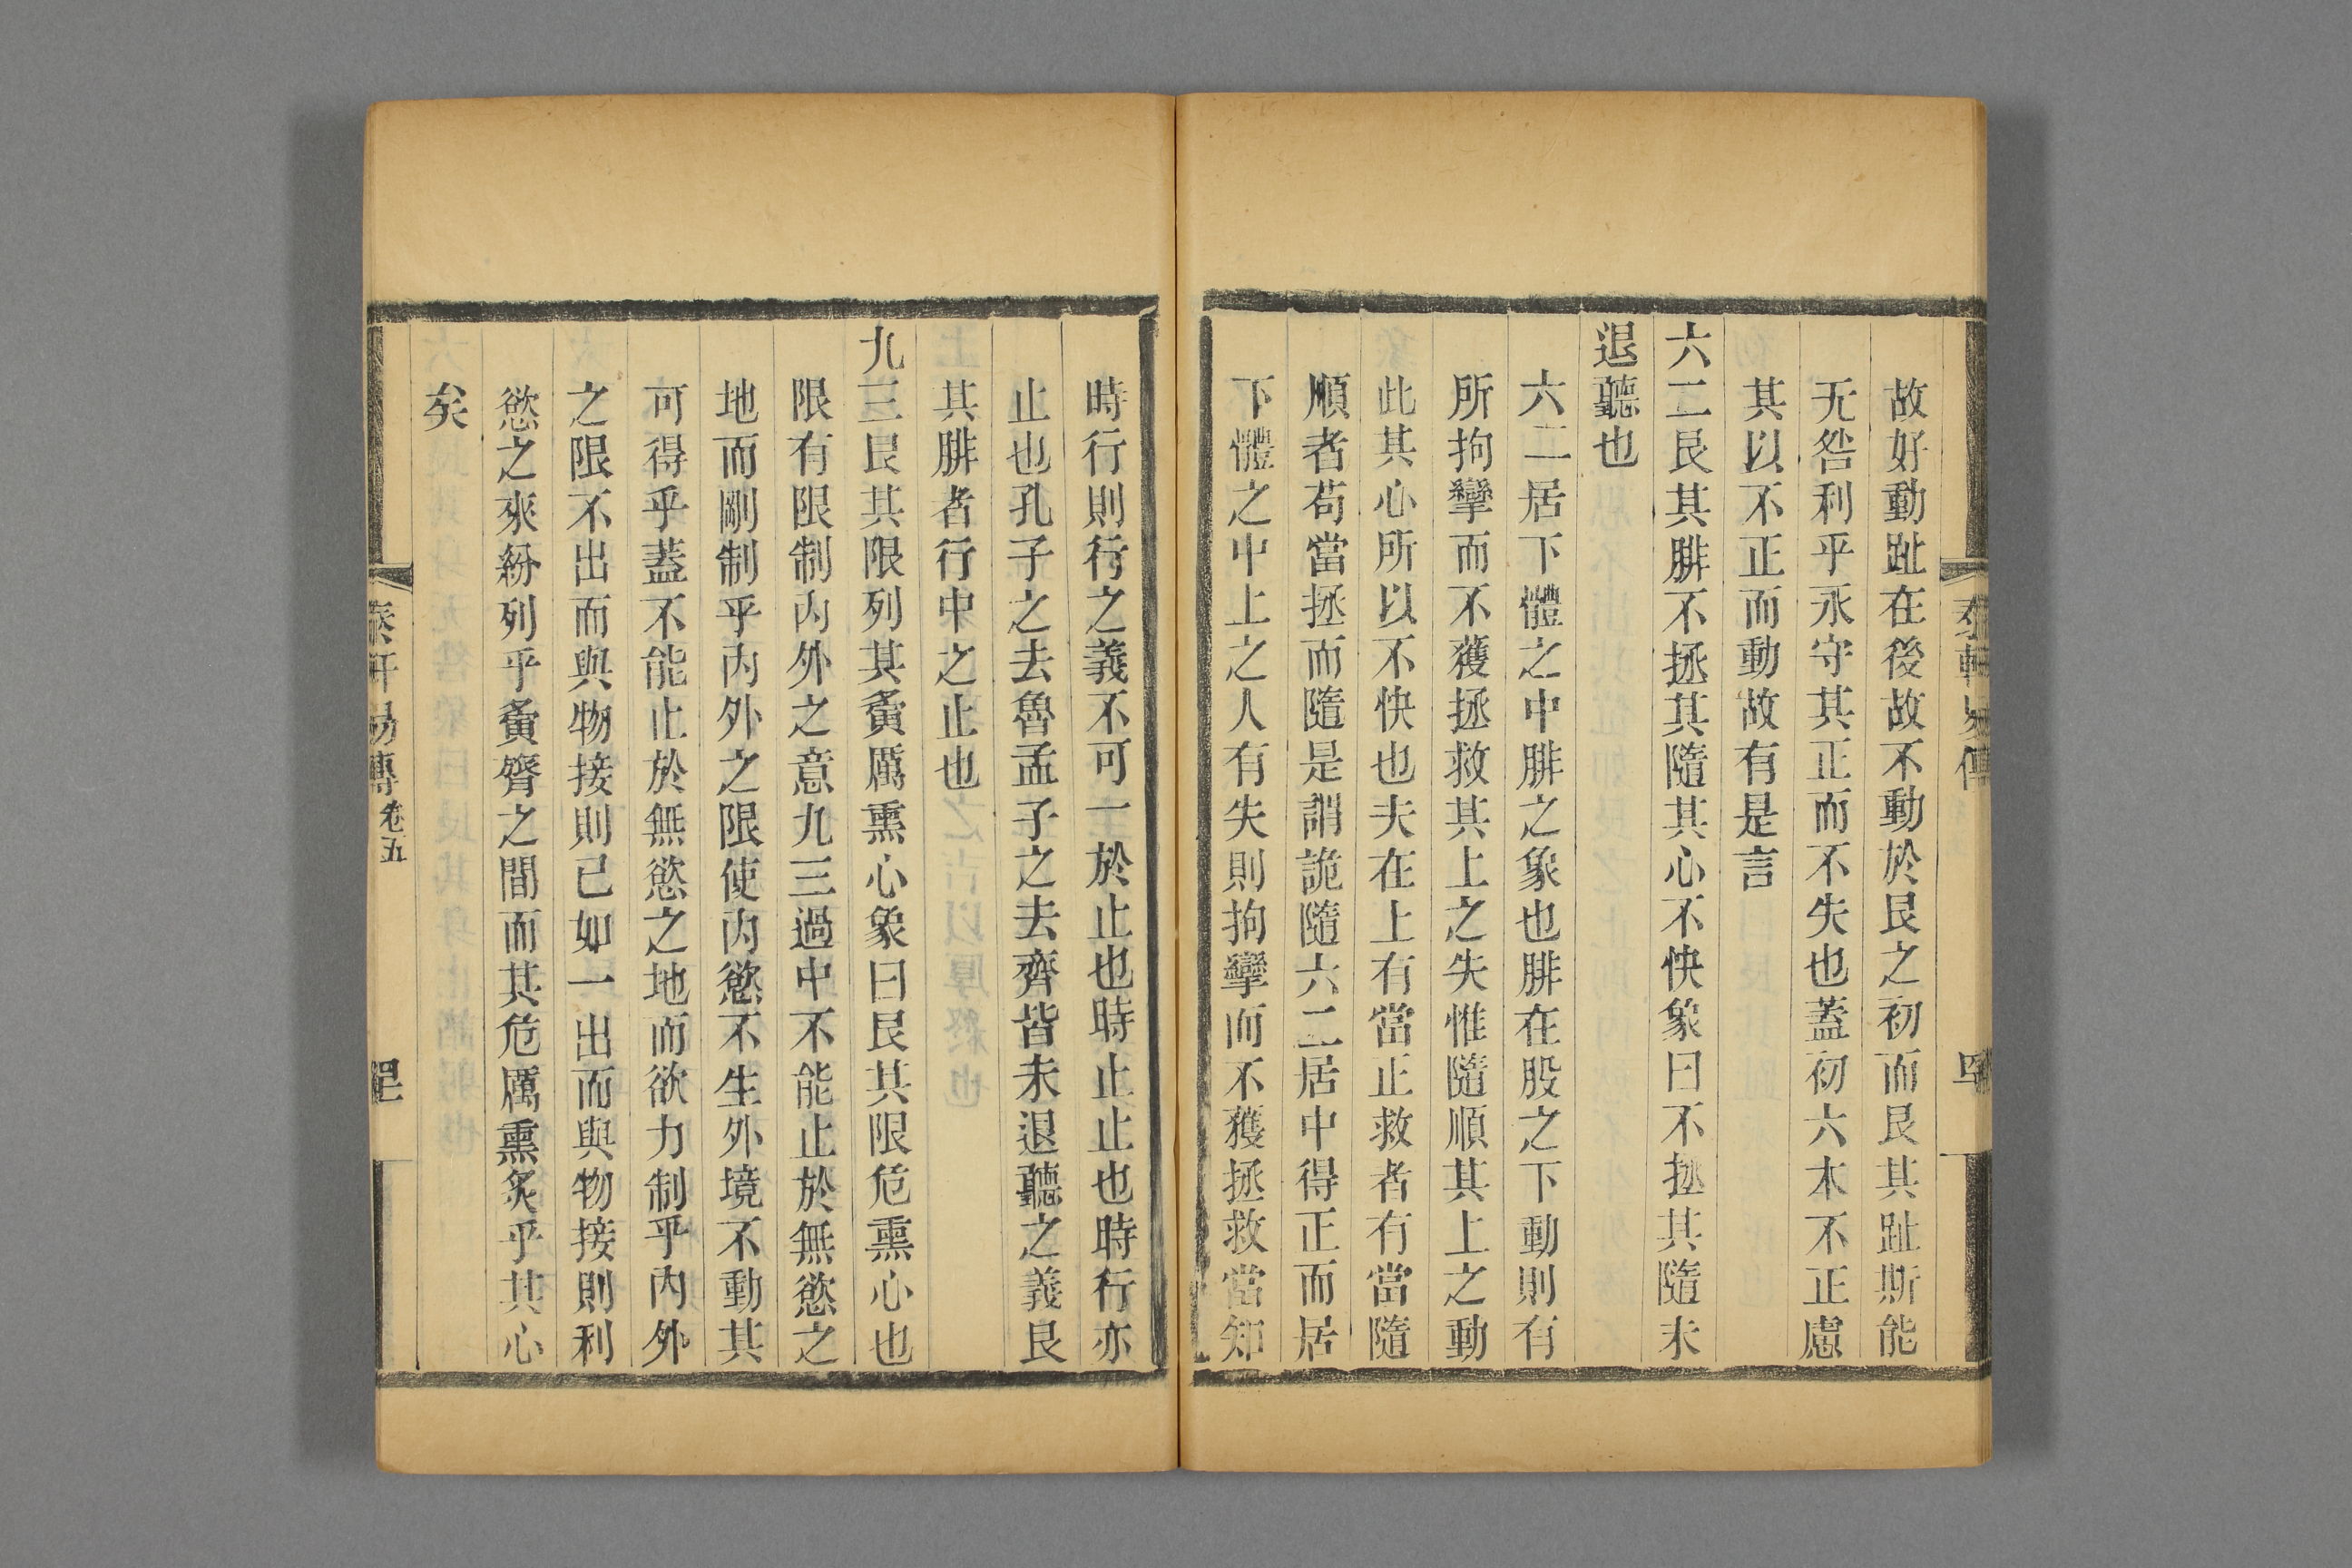 故好動趾在後故不動於艮之初而艮其趾斯能
无咎利乎永守其正而不失也蓋初六本不正慮
其以不正而動故有是言
六二艮其腓不拯其隨其心不快象曰不拯其隨未
退聽也
六二居下體之中腓之象也腓在股之下動則有
所拘攣而不獲拯救其上之失惟隨順其上之動
此其心所以不快也夫在上有當正救者有當隨
順者苟當拯而隨是謂詭隨六二居中得正而居
下體之中上之人有失則拘攣而不獲拯救當知
時行則行之義不可一於止也時止止也時行亦
止也孔子之去魯孟子之去齊皆未退聽之義艮
其腓者行中之止也
九三艮其限列其夤厲熏心象曰艮其限危熏心也
限有限制內外之意九三過中不能止於無慾之
地而剛制乎內外之限使內慾不生外境不動其
可得乎蓋不能止於無慾之地而欲力制乎內外
之限不出而與物接則已如一出而與物接則利
慾之來紛列乎夤膂之間而其危厲熏炙乎其心
矣
軒易傳 卷五